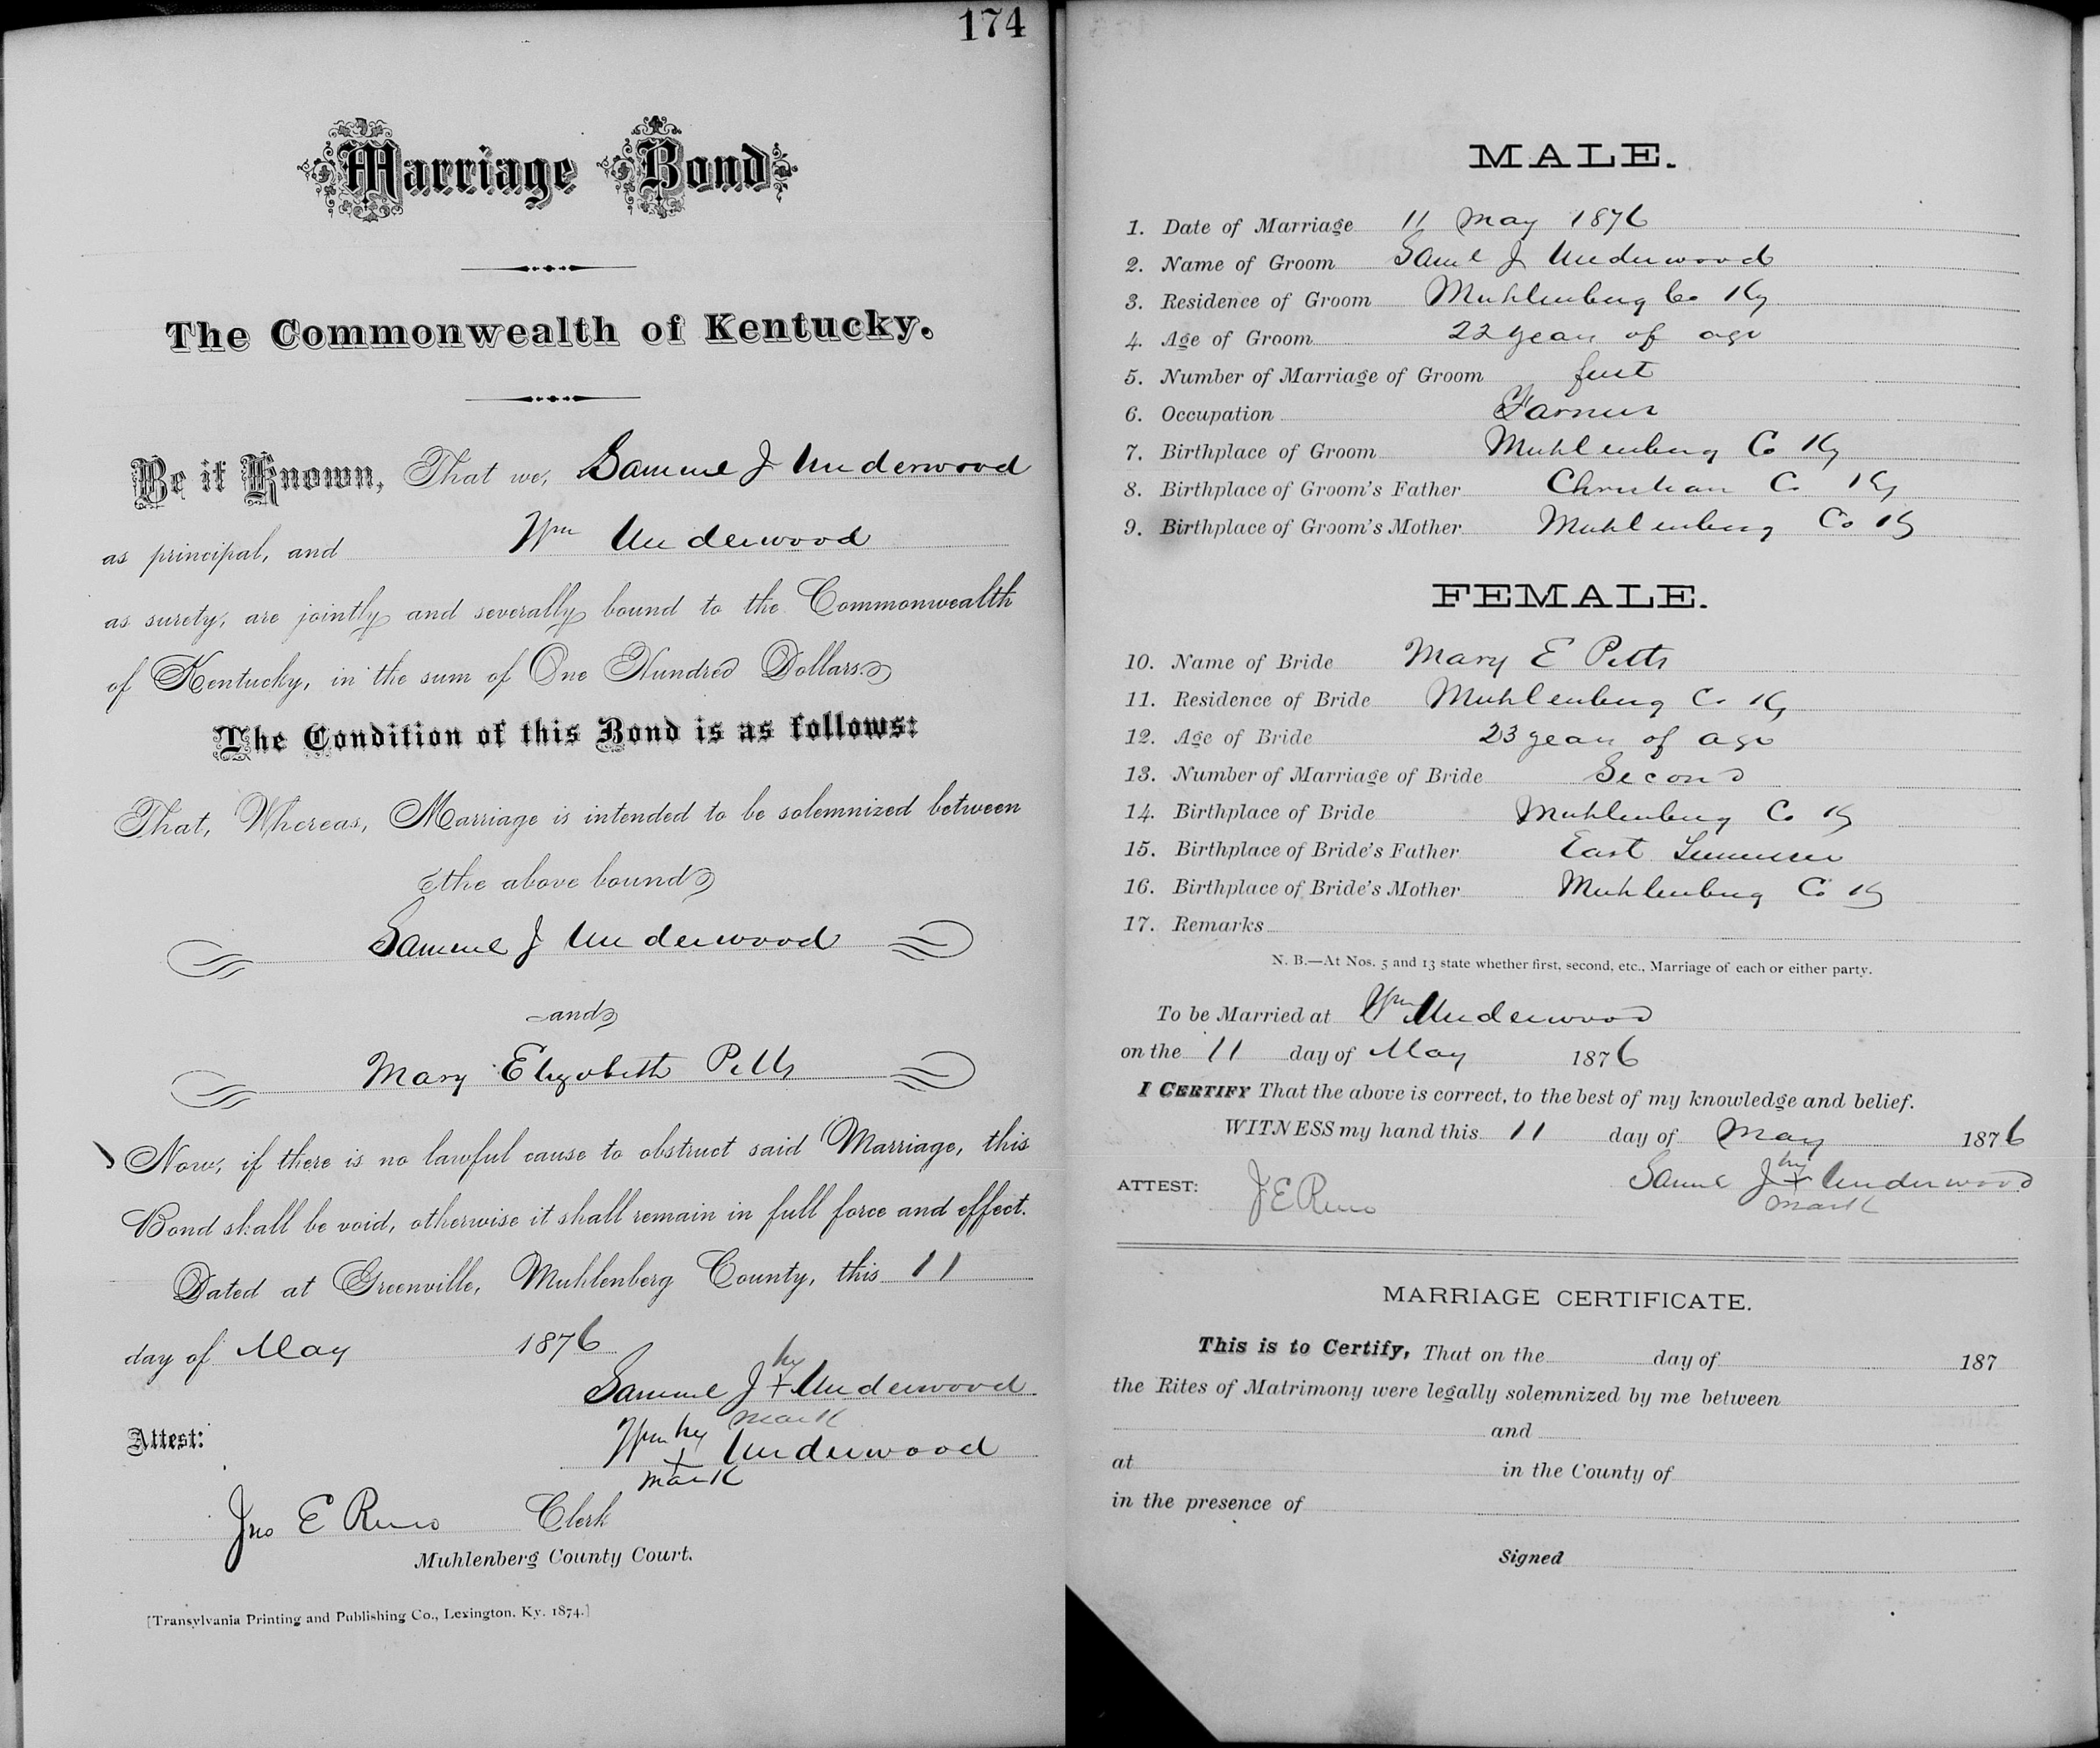 174
Marriage Bond
The Commonwealth of Kentucky.
Be it Known, That we, Samuel J Underwood
as principal, and Wm Underwood
as surety, are jointly and severally bound to the Commonwealth
of Kentucky, in the sum of One Hundred Dollars.
The Condition of this Bond is as follows:
That, Whereas, Marriage is intended to be solemnized between
the above bound
Samuel J Underwood
and
Mary Elizabeth Pitts
Now, if there is no lawful cause to obstruct said Marriage, this
Bond shall be void, otherwise it shall remain in full force and effect.
Dated at Greenville, Muhlenberg County, this 11
day of May 1876
his
Samuel J + Underwood
mark
Attest:
Wm his + Underwood
mark
Jno E Reno Clerk
Muhlenberg County Court.
[Transylvania Printing and Publishing Co., Lexington, Ky. 1874.]
MALE.
1. Date of Marriage 11 May 1876
2. Name of Groom Saml J Underwood
3. Residence of Groom Muhlenberg Co Ky
4. Age of Groom 22 years of age
5. Number of Marriage of Groom first
6. Occupation Farmer
7. Birthplace of Groom Muhlenberg Co Ky
8. Birthplace of Groom's Father Christian Co Ky
9. Birthplace of Groom's Mother Muhlenberg Co Ky
FEMALE.
10. Name of Bride Mary E Pitts
11. Residence of Bride Muhlenberg Co Ky
12. Age of Bride 23 years of age
13. Number of Marriage of Bride Second
14. Birthplace of Bride Muhlenberg Co Ky
15. Birthplace of Bride's Father East Tennessee
16. Birthplace of Bride's Mother Muhlenberg Co Ky
17. Remarks
N. B.—At Nos. 5 and 13 state whether first, second, etc., Marriage of each or either party.
To be Married at Wm Underwood
on the 11 day of May 1876
I CERTIFY That the above is correct, to the best of my knowledge and belief.
WITNESS my hand this 11 day of May 1876
his
ATTEST: J E Reno Samuel J + Underwood
mark
MARRIAGE CERTIFICATE.
This is to Certify, That on the day of 187
the Rites of Matrimony were legally solemnized by me between
and
at in the County of
in the presence of
Signed